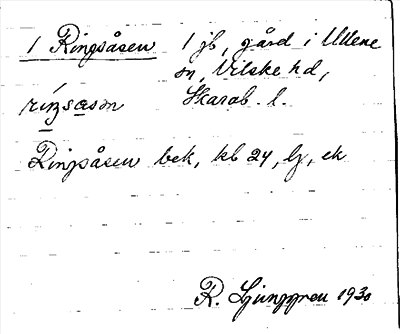 1 Ringsåsen 1 jb, gård i Ullene
sn, Vilske hd,
ríŋsåsən Skarab. l.
Ringsåsen bek, kb 24, lj, ek
R. Ljunggren 1930